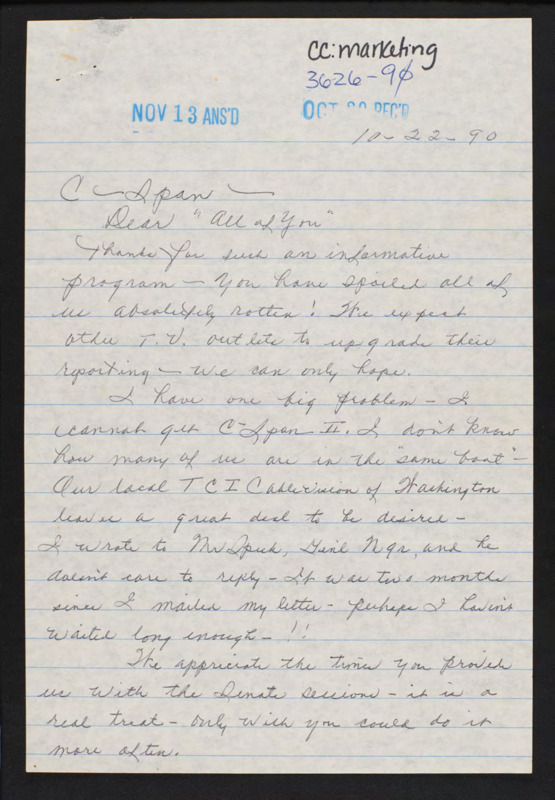 cc: marketing
3626-90
NOV 13 ANS'D
OCT 30 REC'D
10-22-90
C-Span-
Dear "All of You"
Thanks for such an informative
program - You have spoiled all of
us absolutely rotten! We expect
other T.V. outlets to upgrade their
reporting - we can only hope.
I have one big problem - I
cannot get C-Span II. I don't know
how many of us are in the "same boat" -
Our local TCI Cablevision of Washington
leaves a great deal to be desired -
I wrote to Mr Speck, Genl Mgr, and he
doesn't care to reply - It was two months
since I mailed my letter - perhaps I havint
waited long enough - !!
We appriciate the time you provide
us with the Senate sessions - it is a
real treat - only wish you could do it
more often.